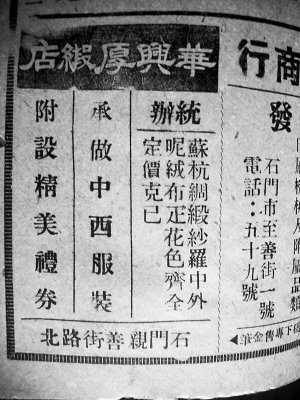 華興厚緞店
統辦
蘇杭綢緞紗羅中外
呢絨布疋花色齊全
定價克己
承做中西服裝
附設精美禮券
石門親善街路北
商行
發
石門市至善街一號
電話：五十九號